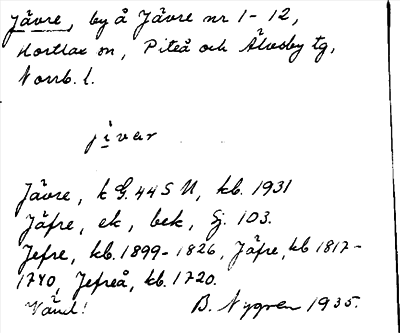 Jävre, by å Jävre nr 1-12,
Hortlax sn, Piteå och Älvsby tg,
Norrb. l.
jìvar
Jävre, k G. 44 S U, kb. 1931
Jäfre, ek, bek, Sj. 103.
Jefre, kb. 1899-1826, Jäfre, kb 1817-
1740, Jefreå, kb. 1720.
Vänd! B. Nygren 1935.